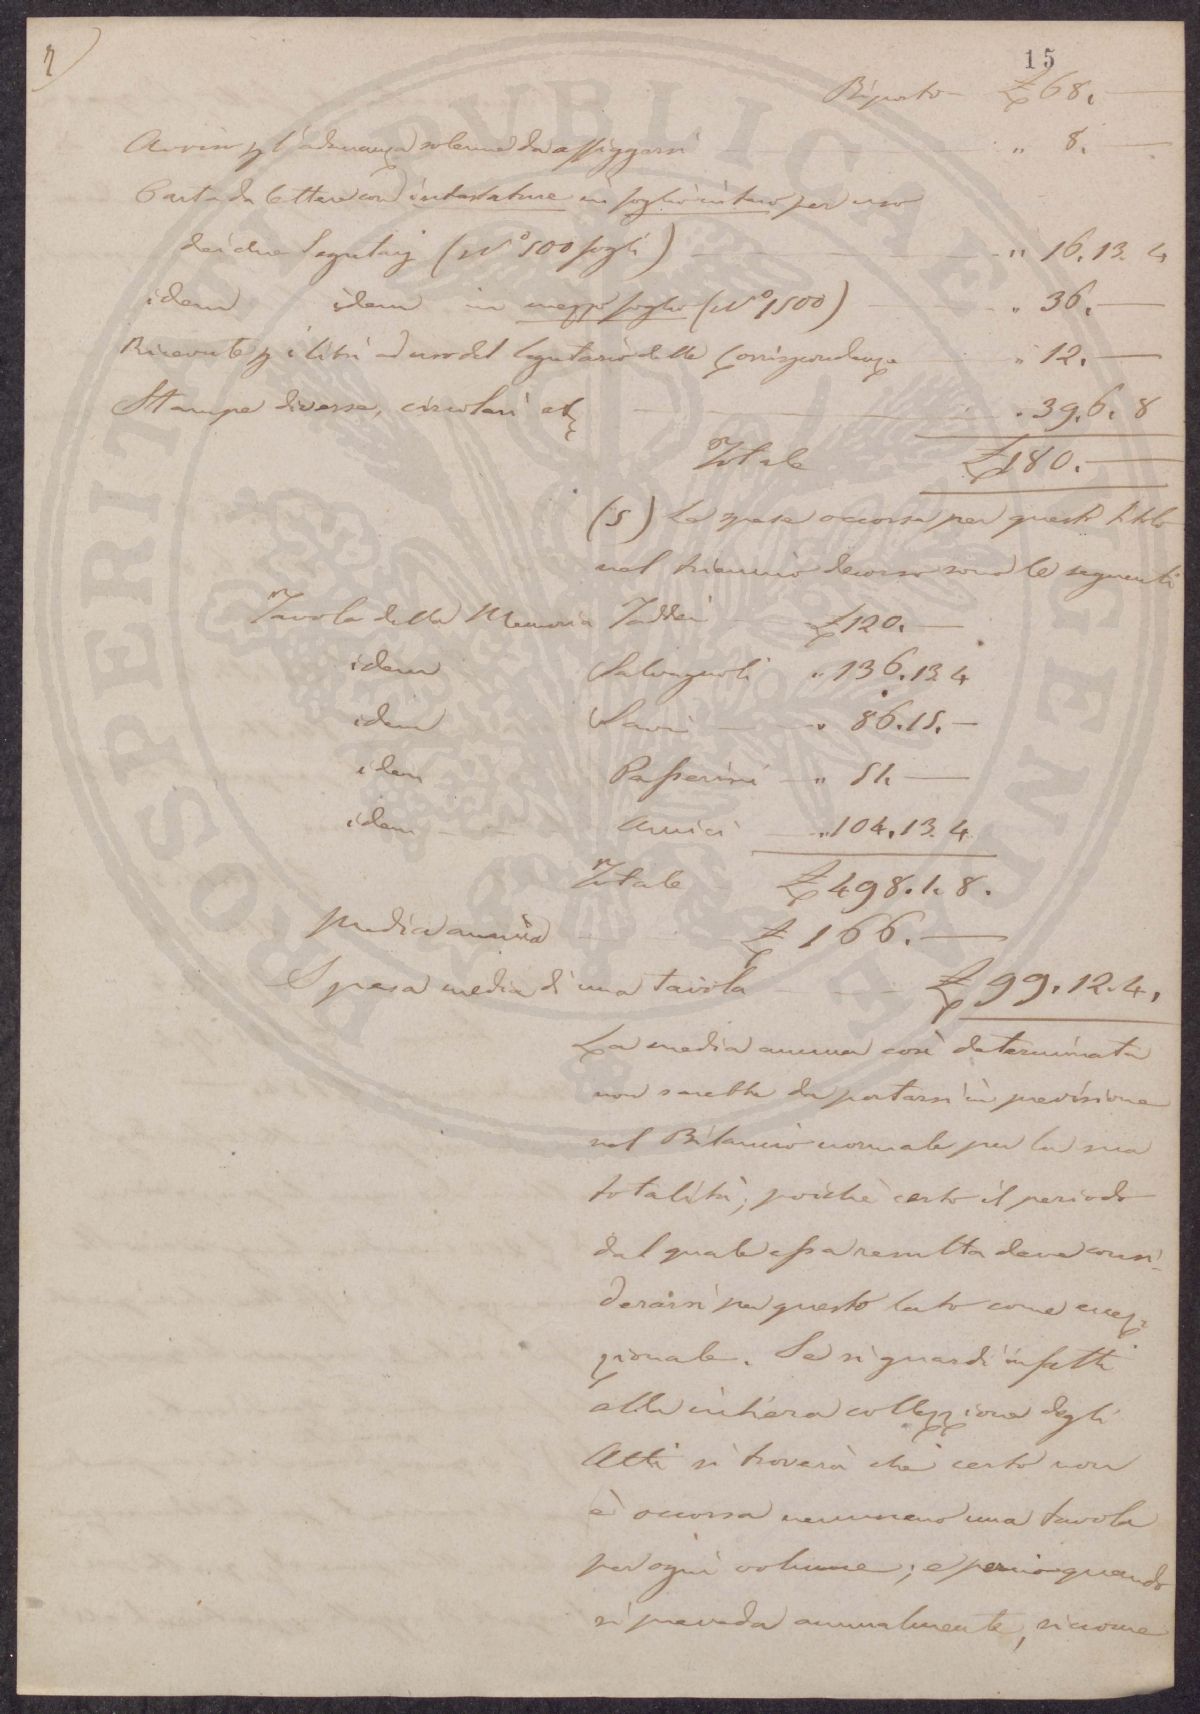 2)
15
Riporto — £ 68. —
Avviso p l'adunanza solenne da affiggersi — „ 8. —
Carta da lettere con intestature in foglio intero per uso
dei due Segretarj (N° 500 fogli) — „ 16. 13. 4
idem idem in mezzo foglio (N° 1500) — „ 36. —
Ricevute p i libri ad uso del Segretario delle Corrispondenze — „ 12. —
Stampe diverse, circolari etc — „ 39. 6. 8
Totale £ 180. —
(5) Le spese occorse per questo titolo
nel triennio decorso sono le seguenti
Tavola della Memoria Taddei — £ 120. —
idem Salvagnoli „ 136. 13. 4
idem Savi — „ 86. 15. —
idem Passerini — „ 51. —
idem — Amici — „ 104. 13. 4
Totale — £ 498. 1. 8.
Media annua — £ 166. —
Spesa media di una tavola — £ 99. 12. 4.
La media annua così determinata
non sarebbe da portarsi in previsione
nel Bilancio normale per la sua
totalità; poichè certo il periodo
dal quale essa resulta deve consi-
derarsi per questo lato come ecce-
zionale. Se si guardi infatti
alla intiera collezzione degli
Atti si troverà che certo non
è occorsa nemmeno una tavola
per ogni volume; e perciò quando
si preveda annualmente, siccome
PROSPERITATI PVBLICAE AVGENDAE